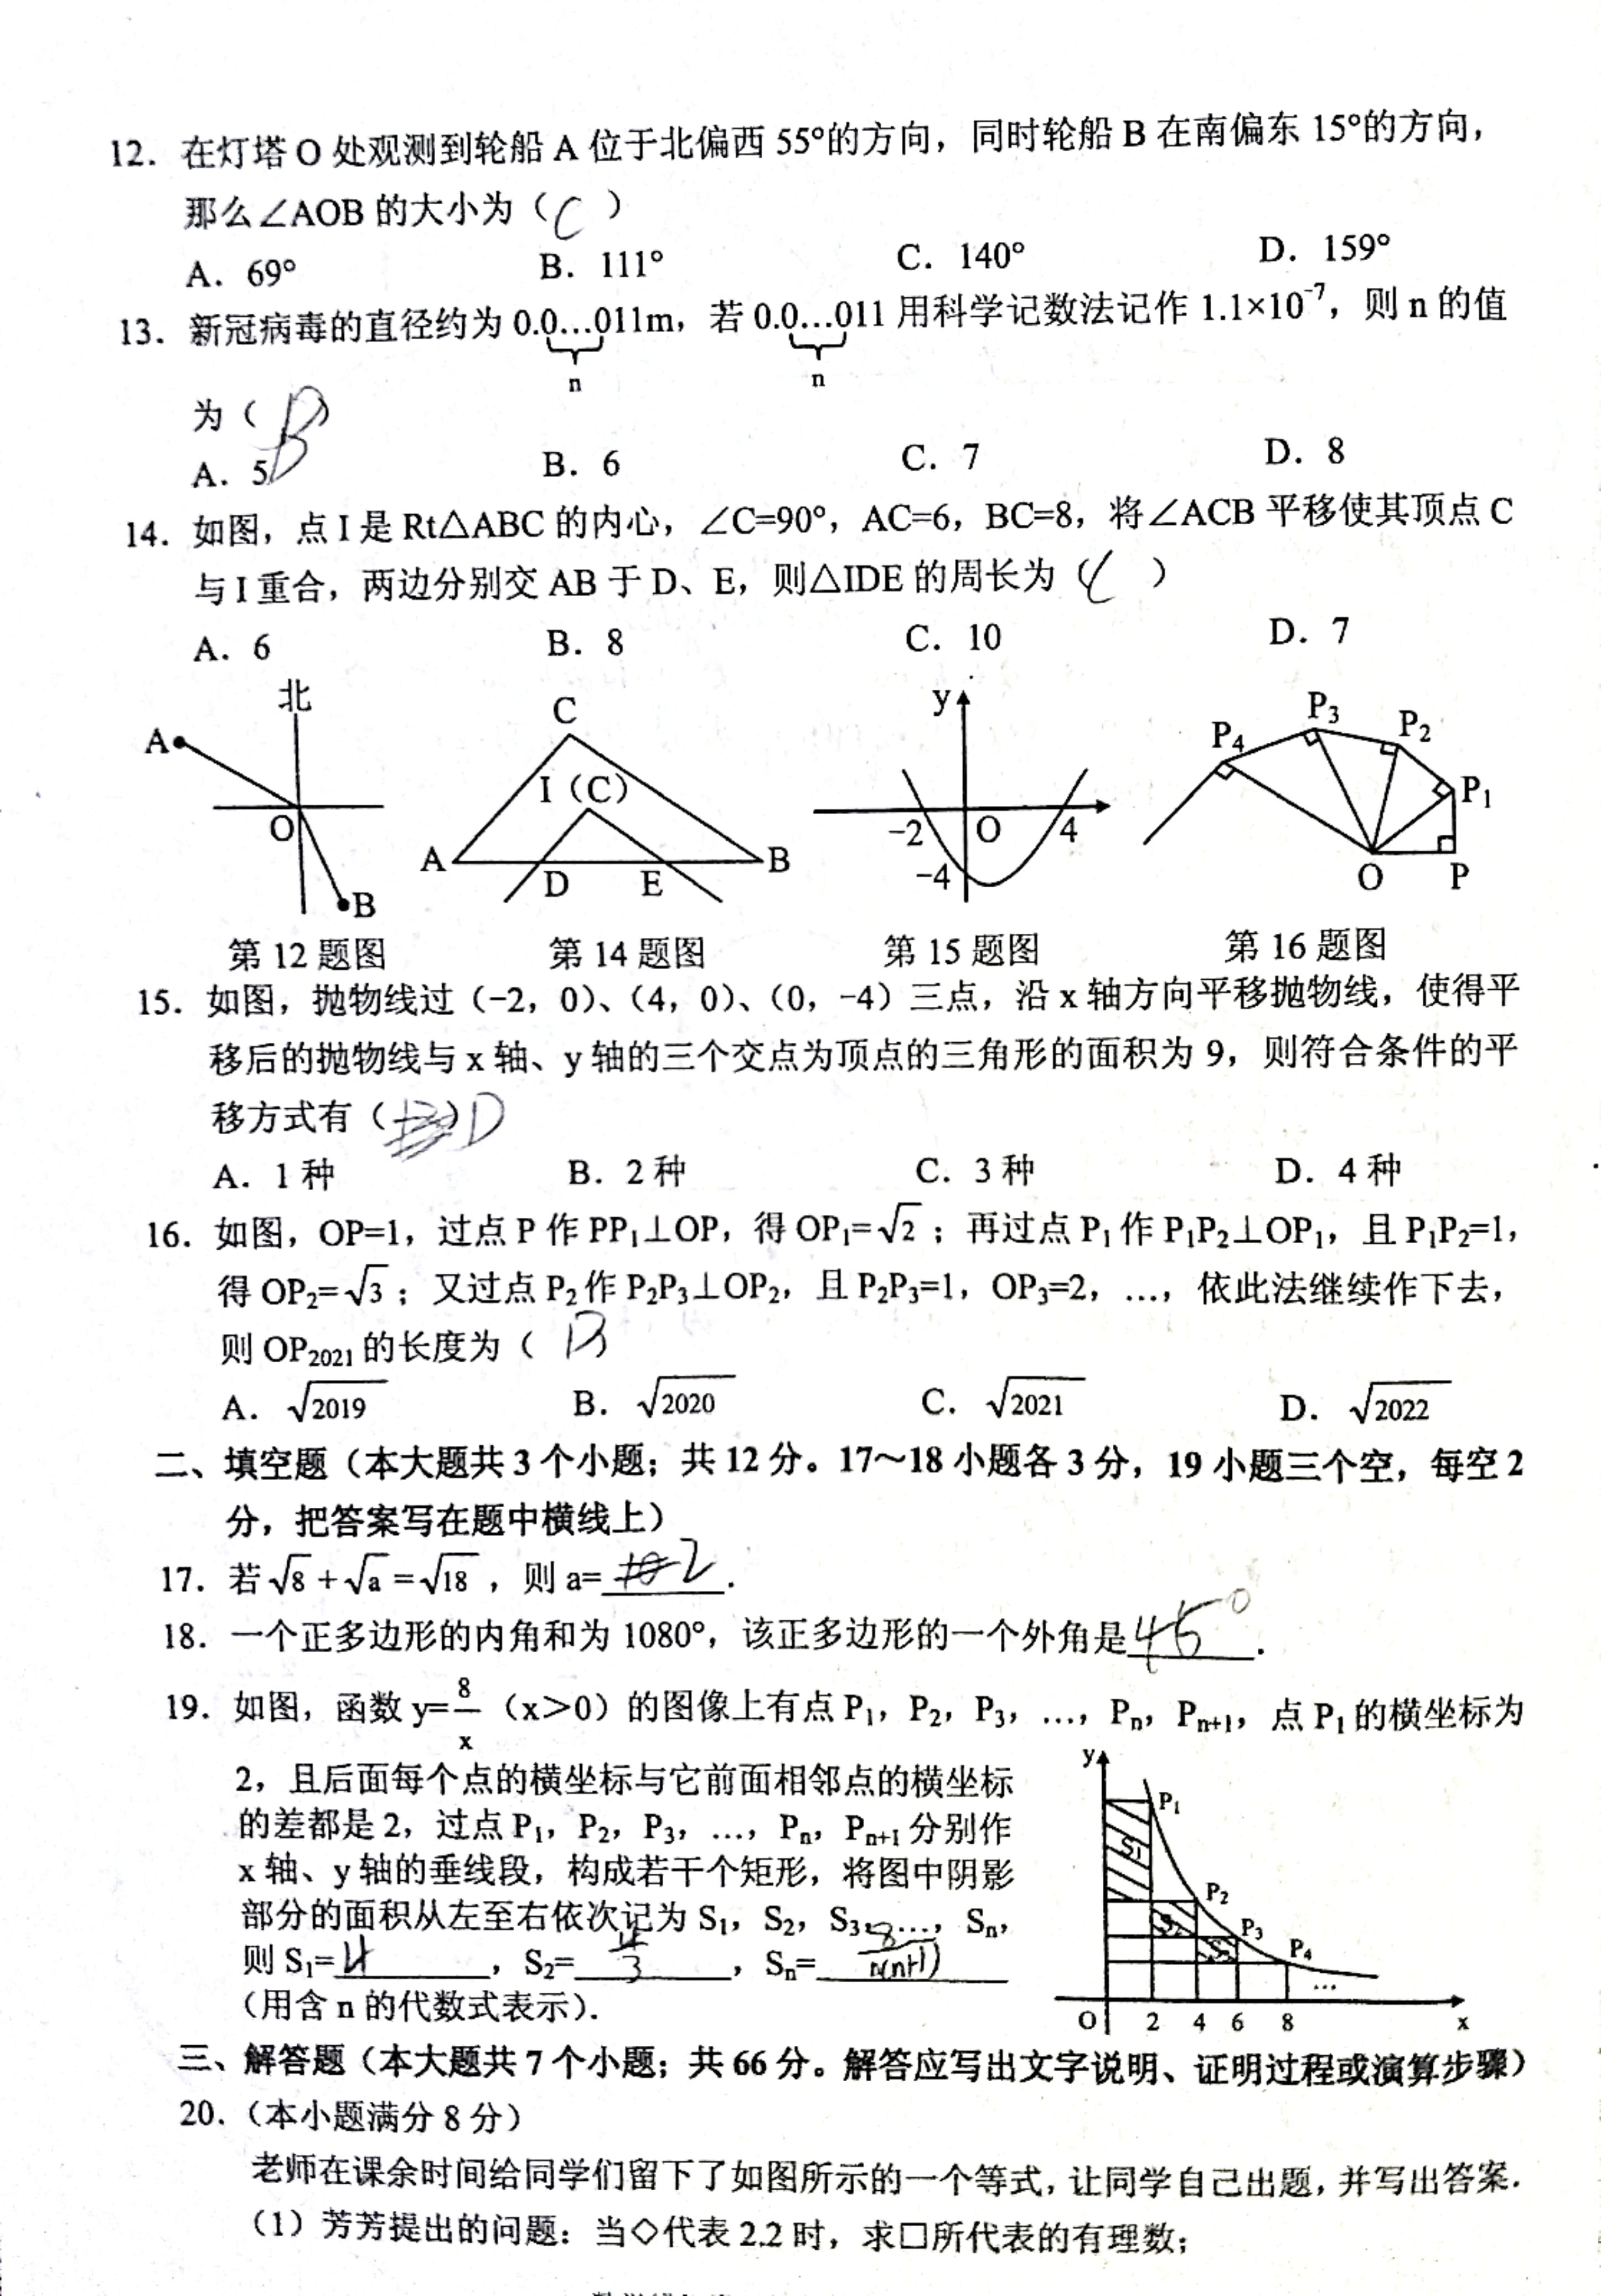 12. 在灯塔 O 处观测到轮船 A 位于北偏西 55°的方向，同时轮船 B 在南偏东 15°的方向，
那么∠AOB 的大小为（ C ）
A. 69° B. 111° C. 140° D. 159°
13. 新冠病毒的直径约为 0.0…011m，若 0.0…011 用科学记数法记作 1.1×10⁻⁷，则 n 的值
n n
为（ B ）
A. 5 B. 6 C. 7 D. 8
14. 如图，点 I 是 Rt△ABC 的内心，∠C=90°，AC=6，BC=8，将∠ACB 平移使其顶点 C
与 I 重合，两边分别交 AB 于 D、E，则△IDE 的周长为（ C ）
A. 6 B. 8 C. 10 D. 7
北
A
O
B
C
I（C）
A
D
E
B
y
-2 O 4
-4
P₄
P₃
P₂
P₁
O P
第 12 题图 第 14 题图 第 15 题图 第 16 题图
15. 如图，抛物线过（-2，0）、（4，0）、（0，-4）三点，沿 x 轴方向平移抛物线，使得平
移后的抛物线与 x 轴、y 轴的三个交点为顶点的三角形的面积为 9，则符合条件的平
移方式有（ ）D
A. 1 种 B. 2 种 C. 3 种 D. 4 种
16. 如图，OP=1，过点 P 作 PP₁⊥OP，得 OP₁=√2；再过点 P₁ 作 P₁P₂⊥OP₁，且 P₁P₂=1，
得 OP₂=√3；又过点 P₂ 作 P₂P₃⊥OP₂，且 P₂P₃=1，OP₃=2，…，依此法继续作下去，
则 OP₂₀₂₁ 的长度为（ B
A. √2019 B. √2020 C. √2021 D. √2022
二、填空题（本大题共 3 个小题；共 12 分。17～18 小题各 3 分，19 小题三个空，每空 2
分，把答案写在题中横线上）
17. 若√8+√a=√18，则 a= 2.
18. 一个正多边形的内角和为 1080°，该正多边形的一个外角是45°.
19. 如图，函数 y=8/x（x＞0）的图像上有点 P₁，P₂，P₃，…，Pₙ，Pₙ₊₁，点 P₁ 的横坐标为
2，且后面每个点的横坐标与它前面相邻点的横坐标
的差都是 2，过点 P₁，P₂，P₃，…，Pₙ，Pₙ₊₁ 分别作
x 轴、y 轴的垂线段，构成若干个矩形，将图中阴影
部分的面积从左至右依次记为 S₁，S₂，S₃，…，Sₙ，
则 S₁=4，S₂=4/3，Sₙ=8/n(n+1)
（用含 n 的代数式表示）.
y
P₁
S₁
P₂
S₂
P₃
P₄
…
O 2 4 6 8 x
三、解答题（本大题共 7 个小题；共 66 分。解答应写出文字说明、证明过程或演算步骤）
20.（本小题满分 8 分）
老师在课余时间给同学们留下了如图所示的一个等式，让同学自己出题，并写出答案.
（1）芳芳提出的问题：当◇代表 2.2 时，求□所代表的有理数；